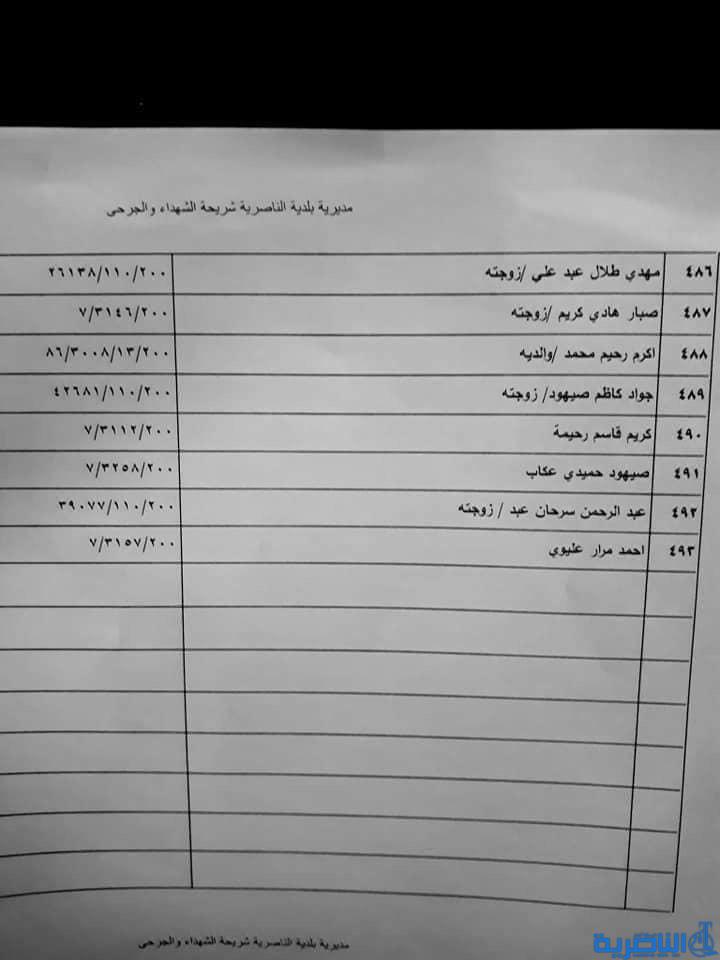 مديرية بلدية الناصرية شريحة الشهداء والجرحى
٤٨٦ مهدي طلال عبد علي /زوجته ٢٦١٣٨/١١٠/٢٠٠
٤٨٧ صبار هادي كريم /زوجته ٧/٣١٤٦/٢٠٠
٤٨٨ اكرم رحيم محمد /والديه ٨٦/٣٠٠٨/١٣/٢٠٠
٤٨٩ جواد كاظم صيهود/ زوجته ٤٢٦٨١/١١٠/٢٠٠
٤٩٠ كريم قاسم رحيمة ٧/٣١١٢/٢٠٠
٤٩١ صيهود حميدي عكاب ٧/٣٢٥٨/٢٠٠
٤٩٢ عبد الرحمن سرحان عبد / زوجته ٣٩٠٧٧/١١٠/٢٠٠
٤٩٣ احمد مرار عليوي ٧/٣١٥٧/٢٠٠
مديرية بلدية الناصرية شريحة الشهداء والجرحى
الناصرية